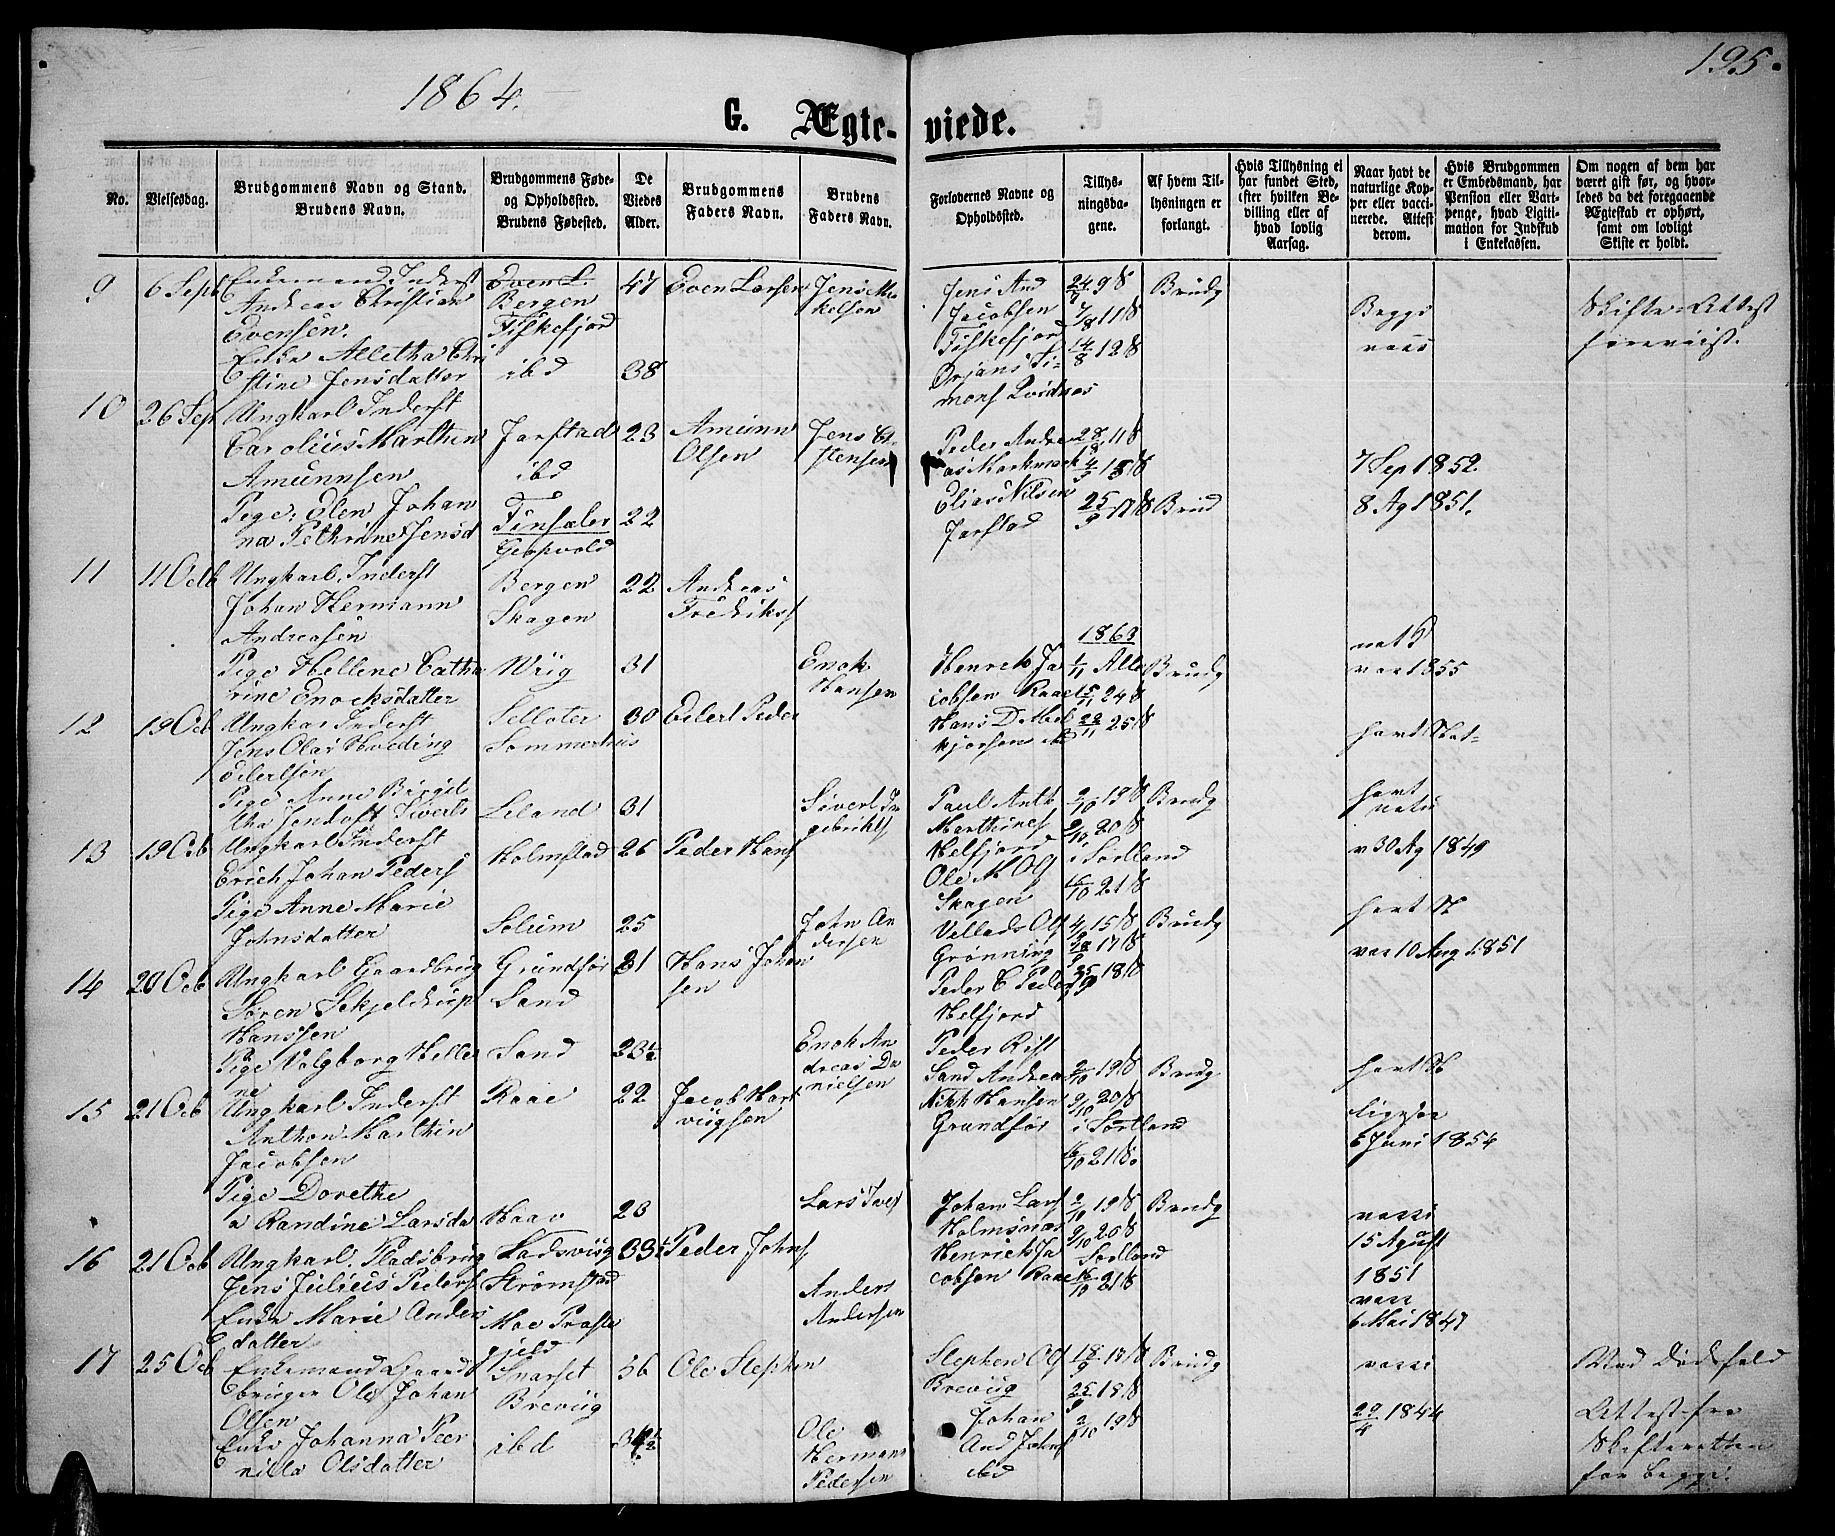 1864.
195.
G. Ægte-viede.
No.
Vielsesdag.
Brudgommens Navn og Stand.
Brudens Navn.
Brudgommens Føde-
og Opholdssted.
Brudens Fødested.
De
Viedes
Alder.
Brudgommens
Faders Navn.
Brudens
Faders Navn.
Forlovernes Navne og
Opholdssted.
Tillys-
ningsda-
gene.
Af hvem Til-
lysningen er
forlangt.
Hvis Tillysning ei
har fundet Sted,
efter hvilken Be-
villing eller af
hvad lovlig
Aarsag.
Naar havt de
naturlige Kop-
per eller vacci-
nerede. Attest
derom.
Hvis Brudgommen
er Embedsmand, har
Pension eller Vart-
penge, hvad Ligiti-
mation for Indskud
i Enkekassen.
Om nogen af dem har
været gift før, og hvor-
ledes da det foregaaende
Ægteskab er ophørt,
samt om lovligt
Skifte er holdt.
9
6 Sept
Enkemand Inderst
Andreas Christian
Evensen.
Enke Alletha Chri
stine Jensdatter
Even L
Bergen
Fiskefjord
ibd
47
38
Even Larsen
Jens Mi
kelsen
Jens And
Jacobsen
Fiskefjord
Ørjans Si-
mons Qvidnes
24/7 9 S
7/8 11 S
14/8 12 S
Brudg
Begge
vacs
Skifte-Attest
foreviist.
10
26 Sep
Ungkarl Inderst
Carolius Marthin
Amunnsen
Pige: Elen Johan
na Pethrine Jensd
Jarstad
ibd
Finsæter
23
22
Amunn
Olsen
Jens Ch
stensen
Peder Andre
as Markmark
Elias Nilsen
Jarstad
28/8 11 S
4/9 15 S
25/9 17 S
Brud
7 Sep 1852.
8 Ag 1851.
11
11 Octb
Ungkarl Inderst
Johan Hermann
Andreasen
Pige Hellene Catha
rine Enocksdatter
Bergen
Skagen
Wiig
22
31
Andreas
Fredriks
Enok
Hansen
Henrik Ja
cobsen Raae
Hans D Mel
kjorsen
1863
1/11 Alle
15/11 24 S
22/11 25 S
Brudg
nat
vac 1855
12
19 Ocb
Ungkar Inderst
Jens Olai Hveding
Eilertsen
Pige Anne Birgit
tha Jendoft Siverts
Selloter
Sommerhus
Leland
30
31
Eilert Peder
Sivert In
gebrikts
Paul Anth
Marthines
Helfjord
2/10 19 S
9/10 20 S
i Sortland
16/10 21 S
Brudg
havt Nat-
havt
natu
13
19 Ocb
Ungkarl Inderst
Erich Johan Peders
Pige Anne Marie
Johnsdatter
Holmstad
Solum
26
25
Peder Hans
John An
dersen
Ole M Og
Skagen
Vellads Ols
Grønning
4/9 15 S
18/9 17 S
25/9 18 S
Brudg
v 30 Ag 1849
havt N
vac 10 Aug 1851
14
20 Ocb
Ungkarl Gaardbrug
Søren Sckjeldrup
Hanssen
Pige Valgborg Helle
ne
Grundfør
Sand
Sand
31
23 1/2
Hans Johan
sen
Enok An
dreas Da
nielsen
Peder C Peder
Helfjord
Peder Rist
Sand Andrea
2/10 19 S
9/10 20 S
i Sortland
16/10 21 S.
Brudg
15
21 Ocb
Ungkarl Inderst
Anthon Marthin
Jacobsen
Pige Dorethe
a Randine Larsda
Raae
Haav
22
23
Jacob Hart
viigsen
Lars Ives
Nikk Hansen
Grundfør
Johan Lars
Holmsnæs
2/10 19 S
9/10 20 S
Sortland
16/10 21 S
Brudg
ligesoe
6 Juni 1854
vacci
15 Agust
1851
16
21 Ocb
Ungkarl. Pladsbrug
Jens Julius Peders
Enke Marie Anders
datter
Ladsviig
Strømstad
Moe Præste
gjeld
33 1/2
Peder Johns
Anders
Andersen
Henrick Ja
cobsen Raae
vacc
6 Mai 1847
17
25 Ocb
Enkemand Gaard
bruger Ole Johan
Olsen
Enke Johanna Peer
nille Olsdatter
Snarset
Breviig
ibd
56
34 1/2
Ole Stephen
Ole
Hermans
Pedersen
Stephen Ols
Breviig
Johan
And Johns
ibd
18/9 17 S
25/9 18 S
2/10 19 S
Brudg
vacci
29/4 1844
Ved Dødsfald
Attest fra
Skifteretten
for begge.